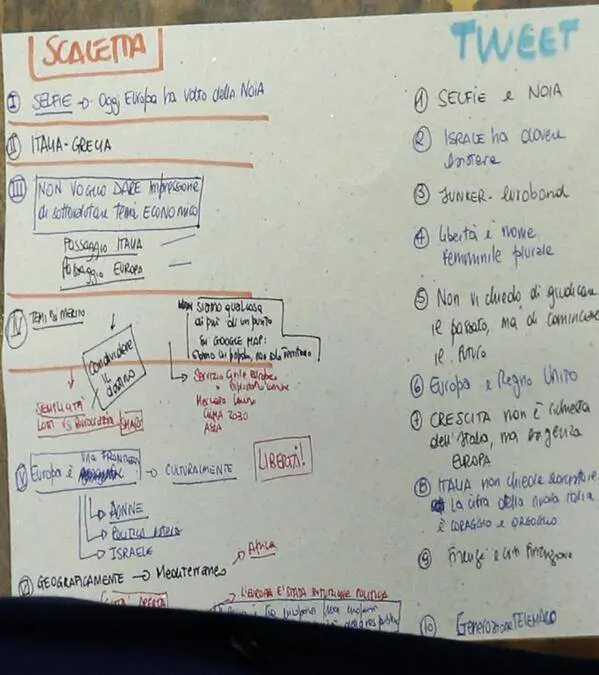 SCALETTA
I SELFIE → Oggi Europa ha volto della NOIA
II ITALIA-GRECIA
III NON VOGLIO DARE impressione
di sottovalutare Temi ECONOMICO
PASSAGGIO ITALIA
PASSAGGIO EUROPA
IV TEMI DI MERITO
condividere
il
destino
NON siamo qualcosa
di più di un punto
su GOOGLE MAP:
siamo un popolo, non solo territorio
SEMPLICITÀ
LOTTA VS BUROCRAZIA
SMART
Servizio Civile Europeo
Mercato Unico
CLIMA 2030
ASIA
V Europa è una FRONTIERA
→ CULTURALMENTE
LIBERTÀ!
→ DONNE
→ POLITICA ESTERA
→ ISRAELE
GEOGRAFICAMENTE → Mediterraneo
→ Africa
APERTA
L'EUROPA È STATA INTUIZIONE POLITICA
TWEET
1 SELFIE e NOIA
2 ISRAELE ha dovere
esistere
3 JUNKER - eurobond
4 libertà è nome
femminile plurale
5 Non vi chiedo di giudicare
il passato, ma di cominciare
il futuro
6 Europa e Regno Unito
7 CRESCITA non è richiesta
dell'Italia, ma esigenza
EUROPA
8 ITALIA non chiede scorciatoie
la cifra della nuova Italia
è CORAGGIO e ORGOGLIO
9 Firenze e
10 Generazione TELEMACO